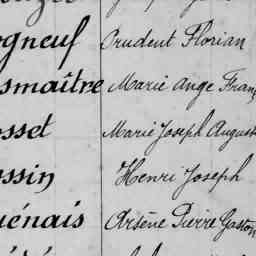 ogneuf Prudent Florian
smaître Marie Ange Fran
osset Marie Joseph August
ossin Henri Joseph
uénais Arsène Pierre Gaston